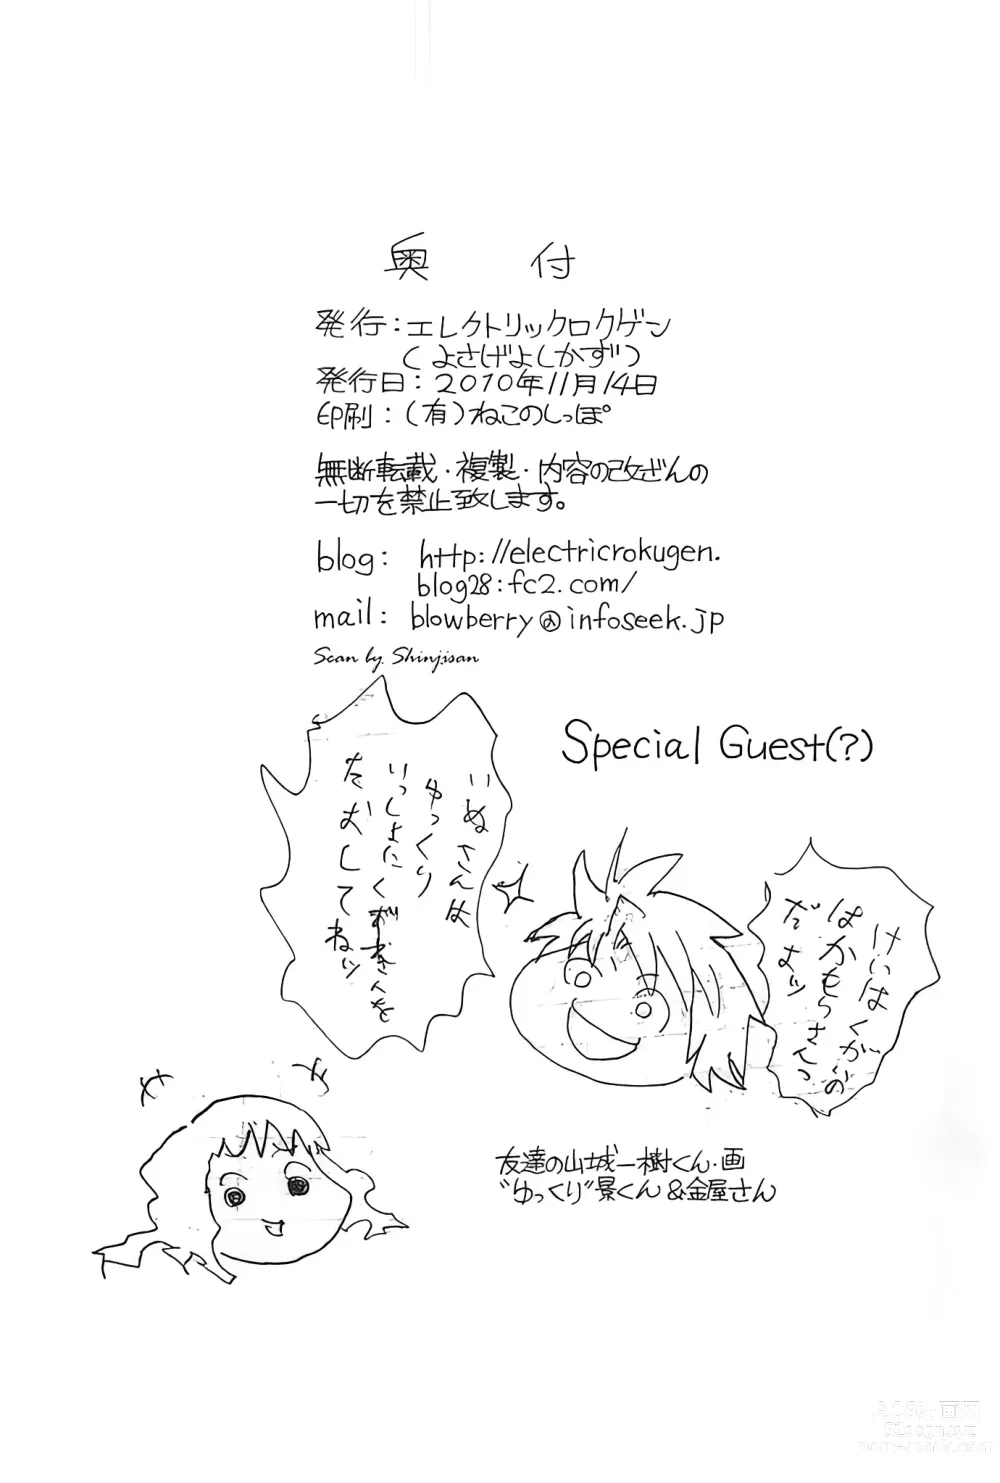 奥付
発行：エレクトリックロクゲン
（よさげよしかず）
発行日：２０１０年１１月１４日
印刷：（有）ねこのしっぽ
無断転載・複製・内容の改ざんの
一切を禁止致します。
blog: http://electricrokugen.
blog28.fc2.com/
mail: blowberry@infoseek.jp
Scan by Shinjisan
Special Guest(?)
けいはくがいの
はかもらさんっ
だよッ
いぬさんは
ゆっくり
いっしょにくずきさんを
たおしてねッ
友達の山城一樹くん・画
"ゆっくり"景くん＆金屋さん